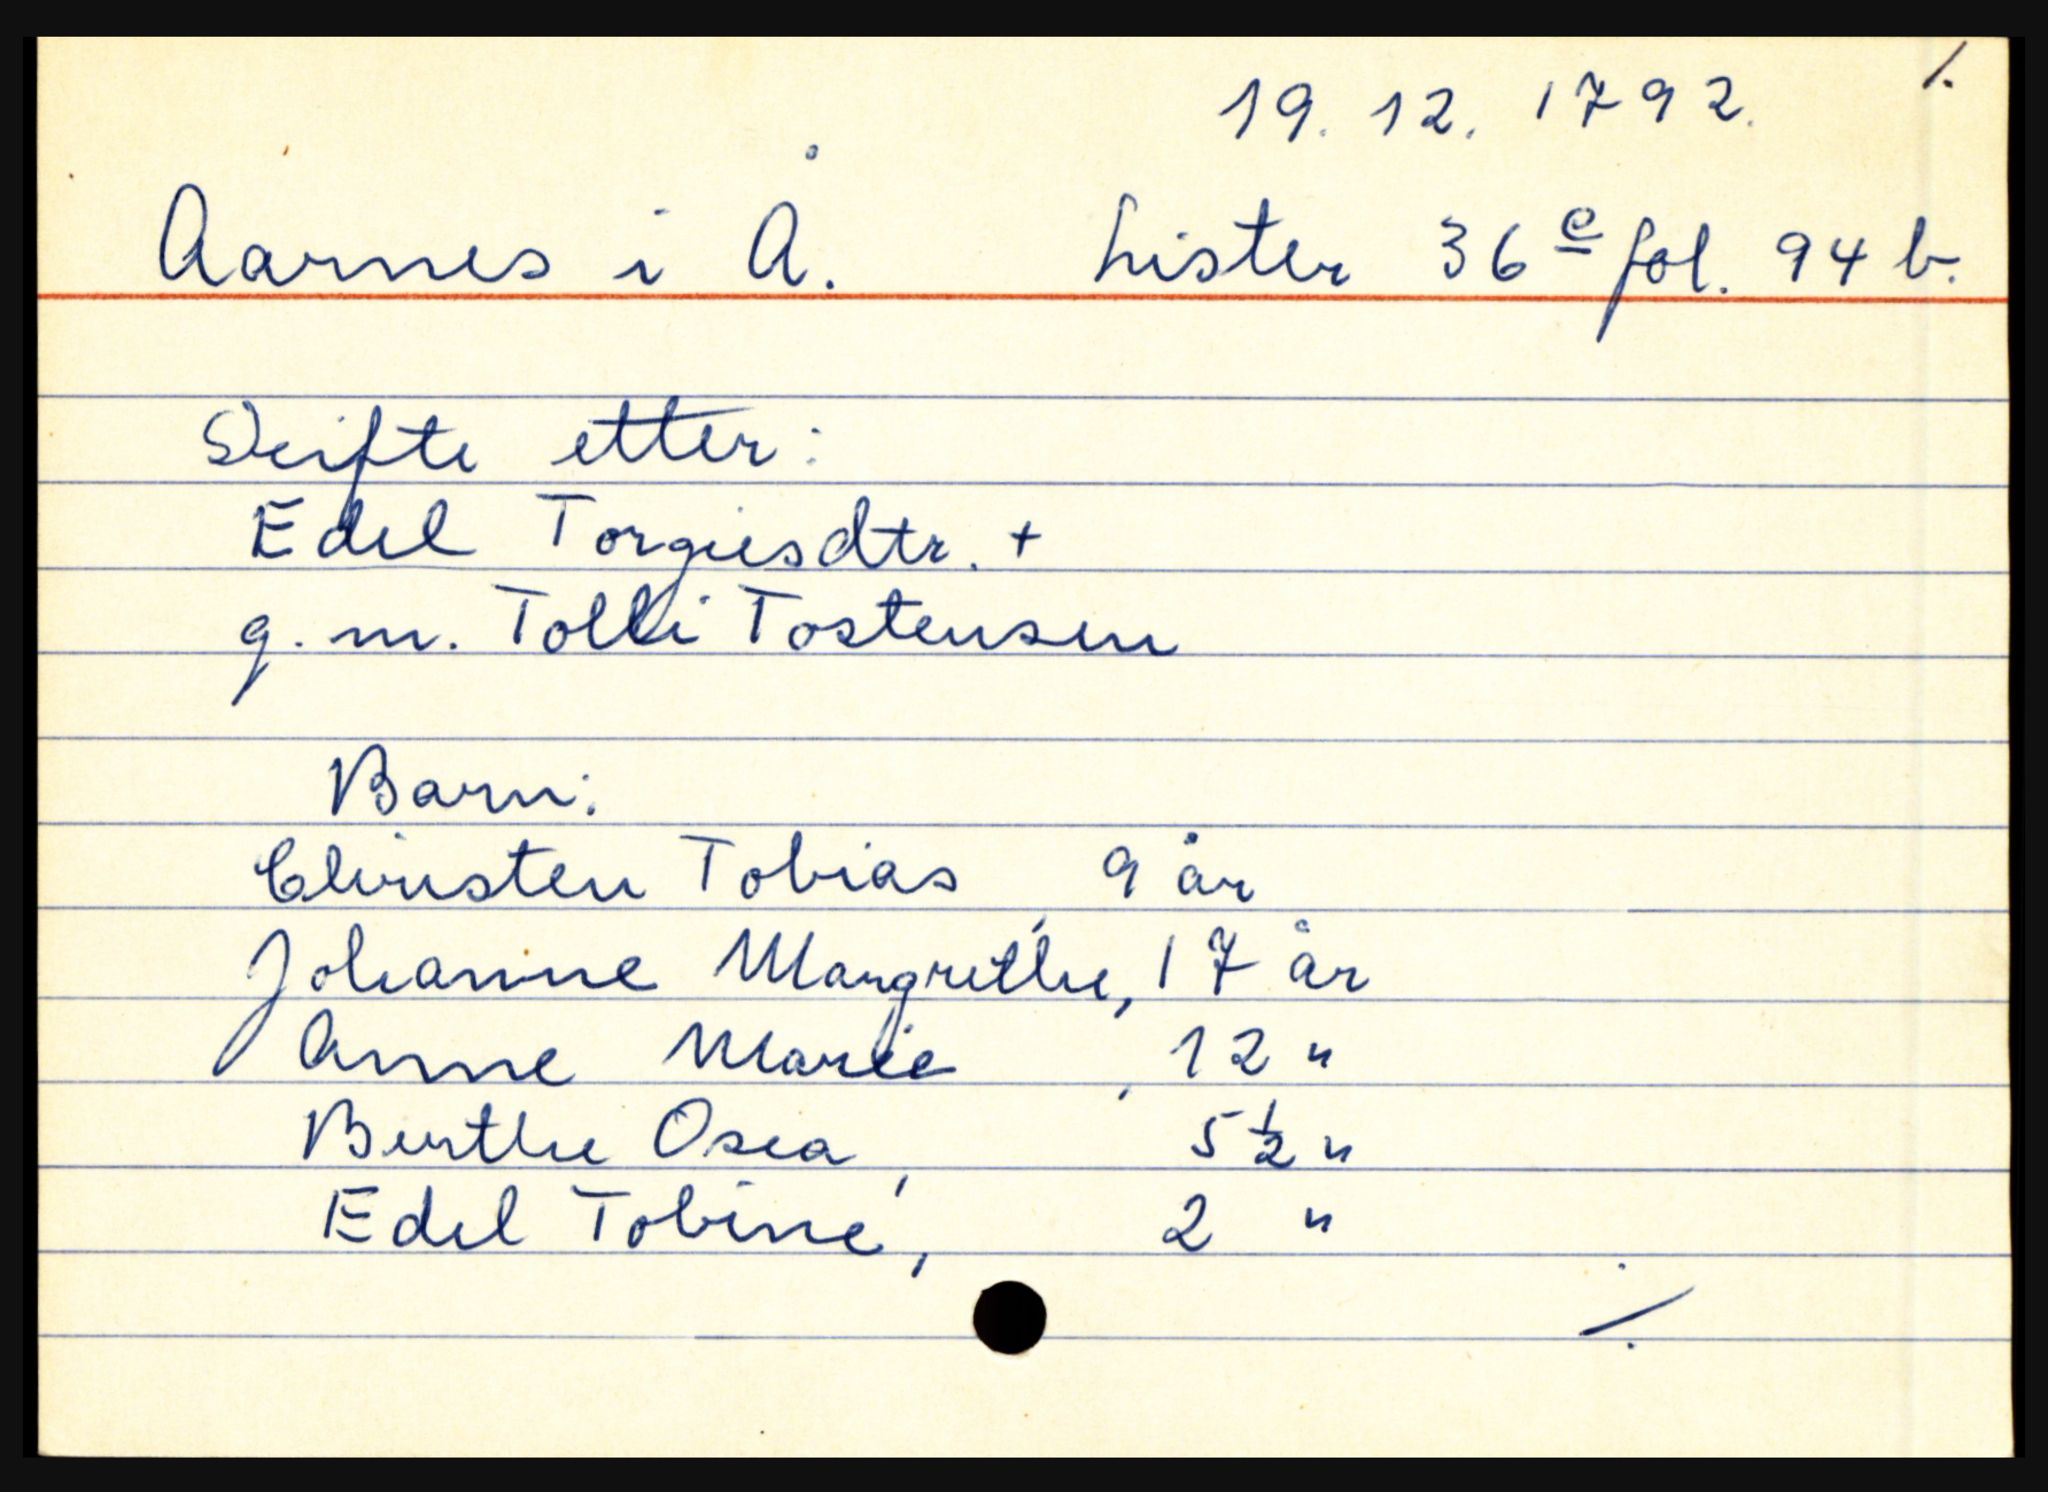 1.
19. 12. 1792.
Aarnes i Å. Lister 36 e fol. 94 b.
Skifte etter:
Edel Torgiesdtr. +
g. m. Tolli Tostensen
Barn:
Christen Tobias, 9 år
Johanne Margrethe, 17 år
Anne Marie, 12 "
Berthe Osea, 5 ½ "
Edel Tobine, 2 "